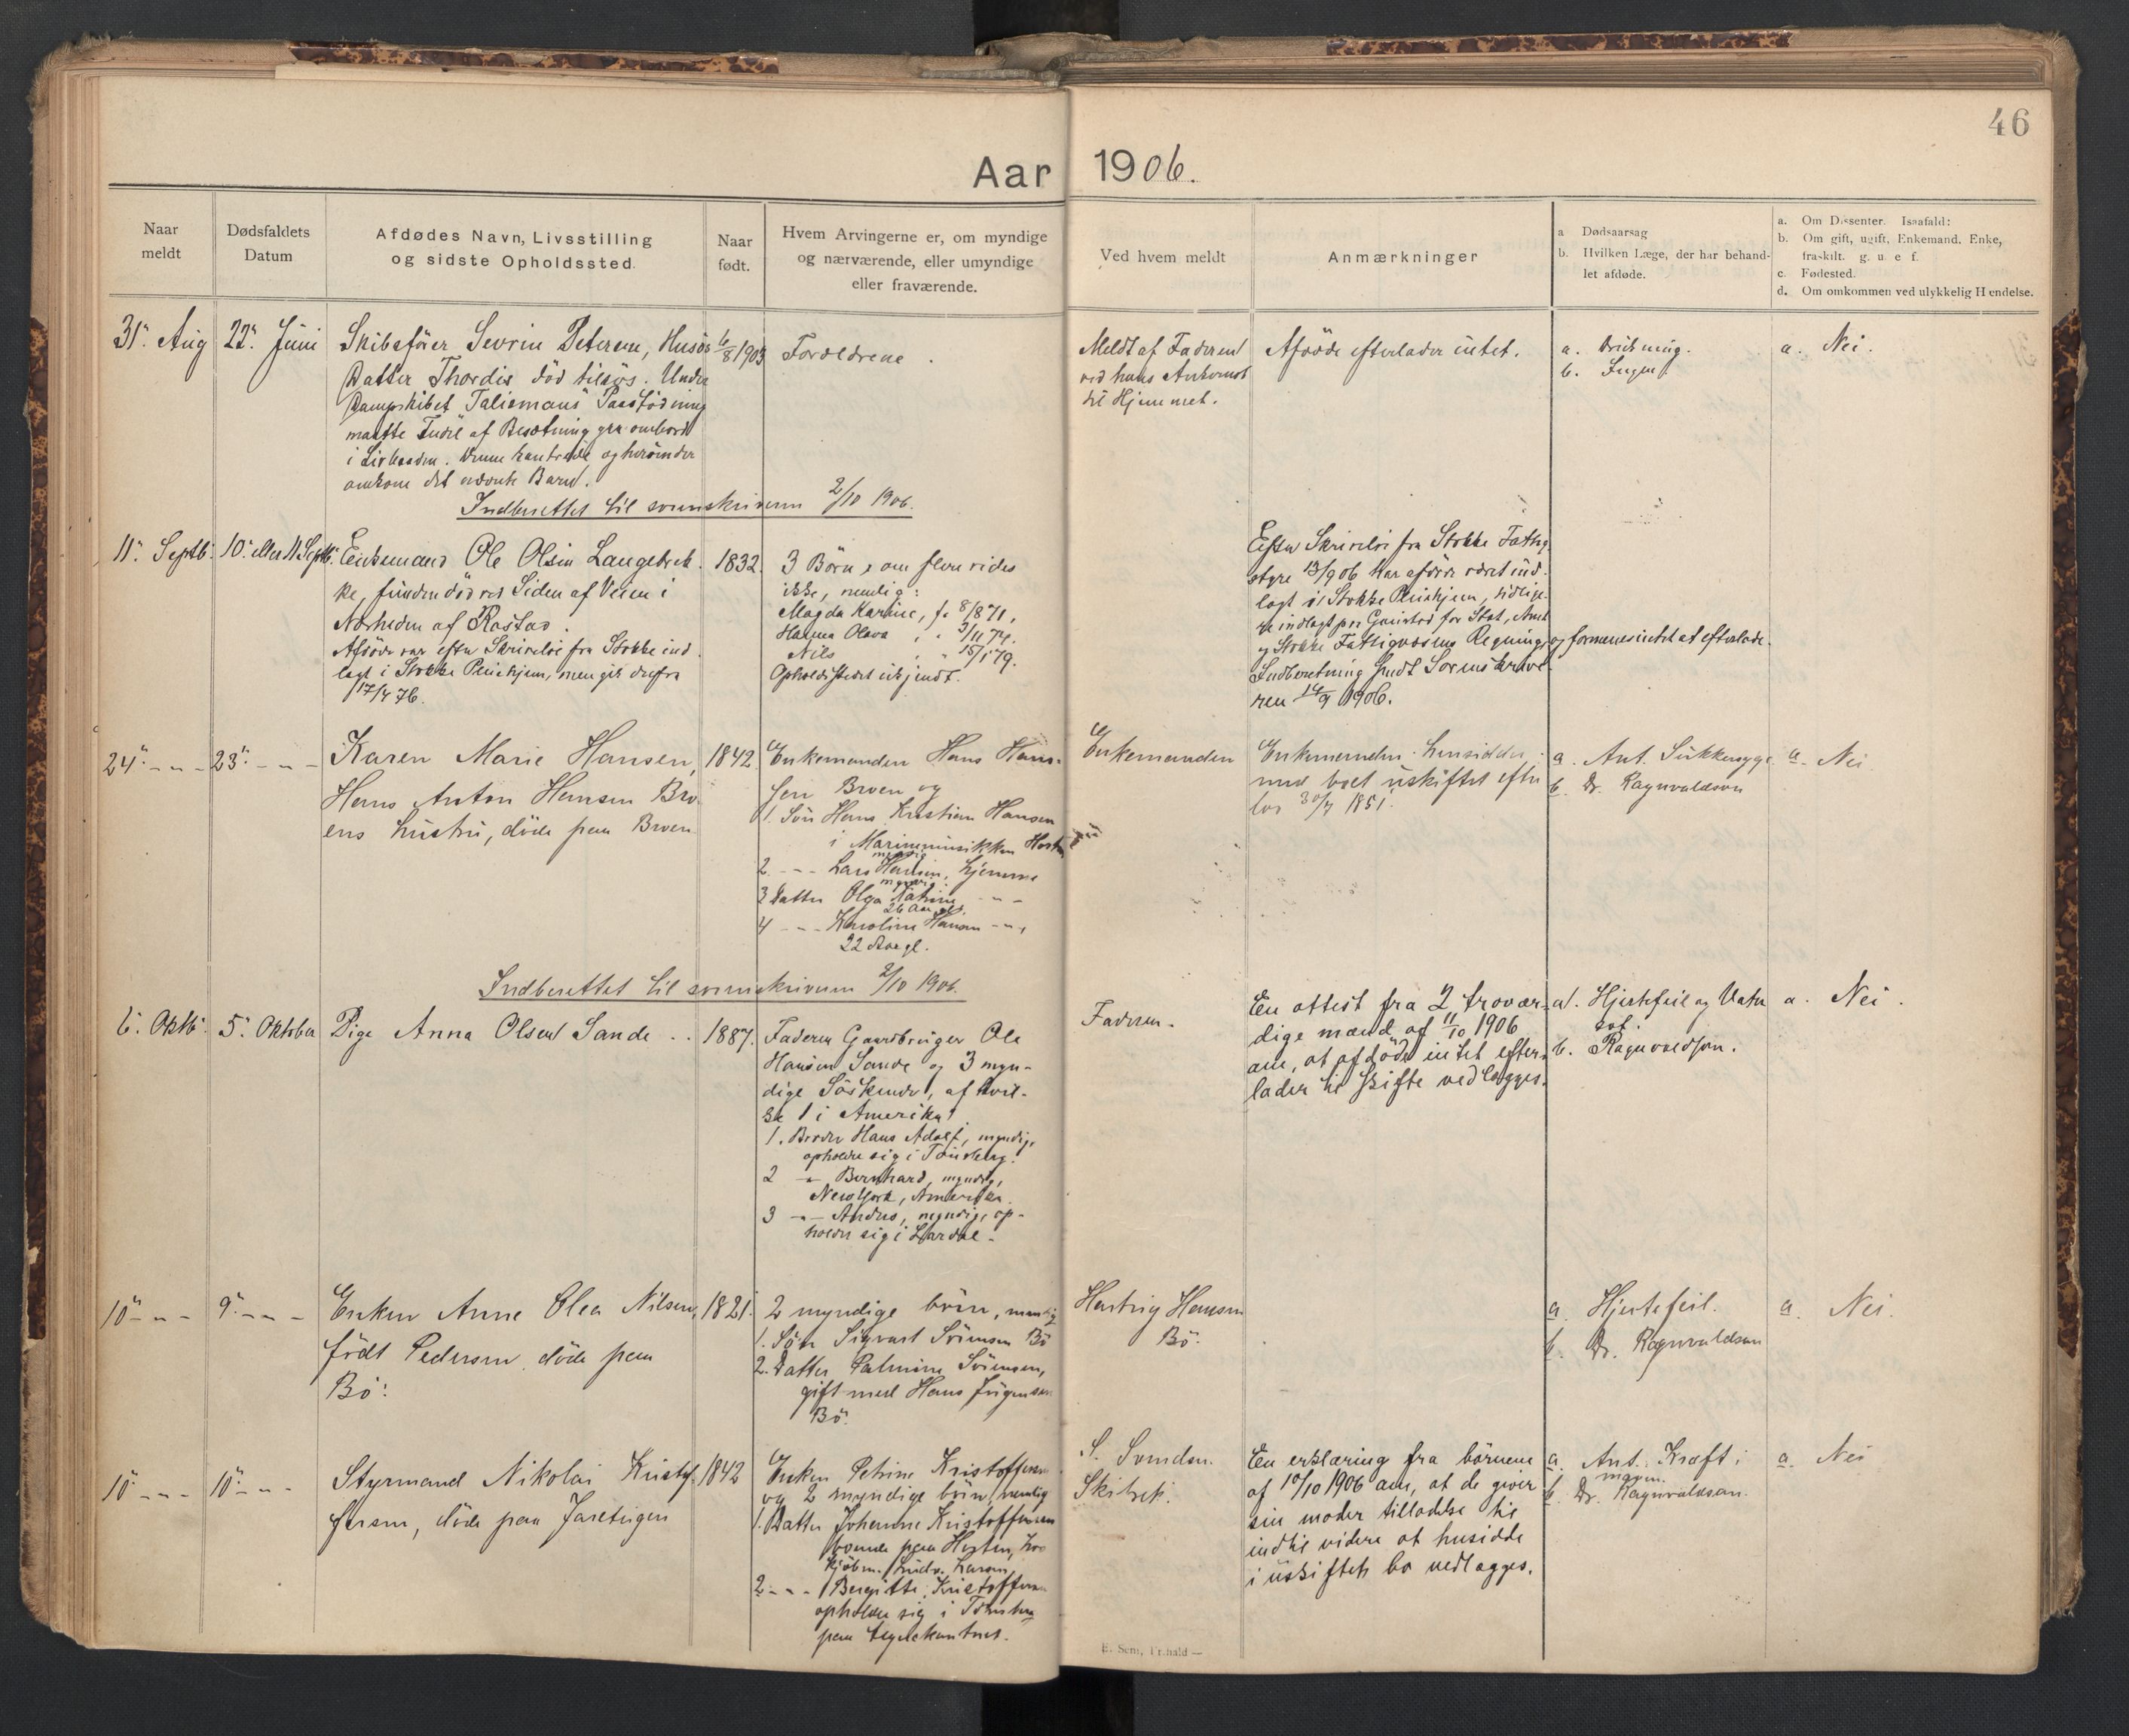 46
Aar 1906.
Naar meldt
Dødsfaldets Datum
Afdødes Navn, Livsstilling og sidste Opholdssted.
Naar født.
Hvem Arvingerne er, om myndige og nærværende, eller umyndige eller fraværende.
Ved hvem meldt
Anmærkninger
a Dødsaarsag
b. Hvilken Læge, der har behandlet afdøde.
a. Om Dissenter. Isaafald:
b. Om gift, ugift, Enkemand, Enke, fraskilt. g. u. e. f.
c. Fødested.
d. Om omkommen ved ulykkelig Hændelse.
31. Aug
22. Juni
Skibsfører Sevrin Petersen, Husø
Datter Thordis død tilsøs. Under
Dampskibet "Talismans" Paastødning
maatte Endel af Besætning gaa ombord
i Livbaaden. Denne kantrede og herunder
omkom det nævnte Barn.
6/8 1903
Forældrene.
Meldt af Faderen
ved hans Ankomst
til Hjemmet.
Afdøde efterlader intet.
a. Drukning.
b. Ingen.
a. Nei.
Indberettet til sorenskriveren 2/10 1906.
11. Septb.
10. eller 11 Septb.
Enkemand Ole Olsen Langebrek
ke, funden død ved Siden af Veien i
Nærheden af Rastad.
Afdøde var efter Skrivelse fra Stokke ind
lagt i Stokke Pleiehjem, men gik derfra
17/4 76.
1832.
3 Børn, om flere vides
ikke, nemlig:
Magda Karine, f. 8/8 71,
Hanna Olava, " 3/11 74.
Nils, " 15/1 79.
Opholdsstedet ukjendt.
Efter Skrivelse fra Stokke Fattig
styre 13/9 06 har afdøde været ind
lagt i Stokke Pleiehjem, tidlige
re indlagt paa Gaustad for Stat, Amt
og Stokke Fattigvæsens Regning, og formenes intet at efterlade.
Indberetning sendt Sorenskrive
ren 14/9 1906.
24. - " -
23. - " -
Karen Marie Hansen,
Hans Anton Hansen Bro
ens hustru, døde paa Broen
1842.
Enkemanden Hans Han-
sen Broen og
1. Søn Hans Kristian Hansen
i Marinemusikken Horten
myndig
2. - " - Lars Hansen, hjemme
myndig
3 Datter Olga Katrine - " -
26 Aar gl.
4 - " - Karoline Hansen - " -,
22 Aar gl.
Enkemanden
Enkemanden hensidder
med boet uskiftet efter
lov 30/7 1851.
a. Ant. Sukkersyge
b. Dr. Ragnvaldson
a. Nei
Indberettet til sorenskriveren 2/10 1906.
6. Oktb.
5. Oktober
Pige Anna Olsen Sande
1887.
Faderen Gaardbruger Ole
Hansen Sande og 3 myn-
dige Søskende, af hvil-
ke 1 i Amerika!
1. Broder Hans Adolf, myndig,
opholder sig i Tønsberg.
2 - " - Bernhard, myndig,
New York, Amerika.
3 - " - Anders, myndig, op-
holder sig i Lardal.
Faderen.
En attest fra 2 trovær-
dige mænd af 11/10 1906
om, at afdøde intet efter-
lader til skifte vedlægges.
a. Hjertefeil og Vater
sot.
b. Ragnvaldson.
a. Nei.
10 - " -
9. - " -
Enken Anne Olea Nilsen,
født Pedersen, døde paa
Bø.
1821.
2 myndige børn, nemlig
1. Søn Sigvart Sørensen Bø
2. Datter Palmine Sørensen,
gift med Hans Jørgensen
Bø.
Hartvig Hansen
Bø.
a. Hjertefeil.
b. Dr. Ragnvaldson
a. Nei.
10 - " -
10 - " -
Styrmand Nikolai Kristof
fersen, døde paa Jareteigen
1842
Enken Petrine Kristoffersen
og 2 myndige børn, nemlig
1. Datter Johanne Kristoffersen
boende paa Horten, hos
Kjøbm. Ludv. Larsen,
2 - " - Bergitte Kristoffersen
opholder sig i Tønsberg
paa
S. Svendsen
En erklæring fra børnene
af 10/10 1906 om, at de giver
sin moder tilladelse til
indtil videre at hensidde
i uskiftet bo vedlægges.
a. Ant. Kræft i
maven.
b. Dr. Ragnvaldson.
a. Nei
E. Sem, Fr.hald —